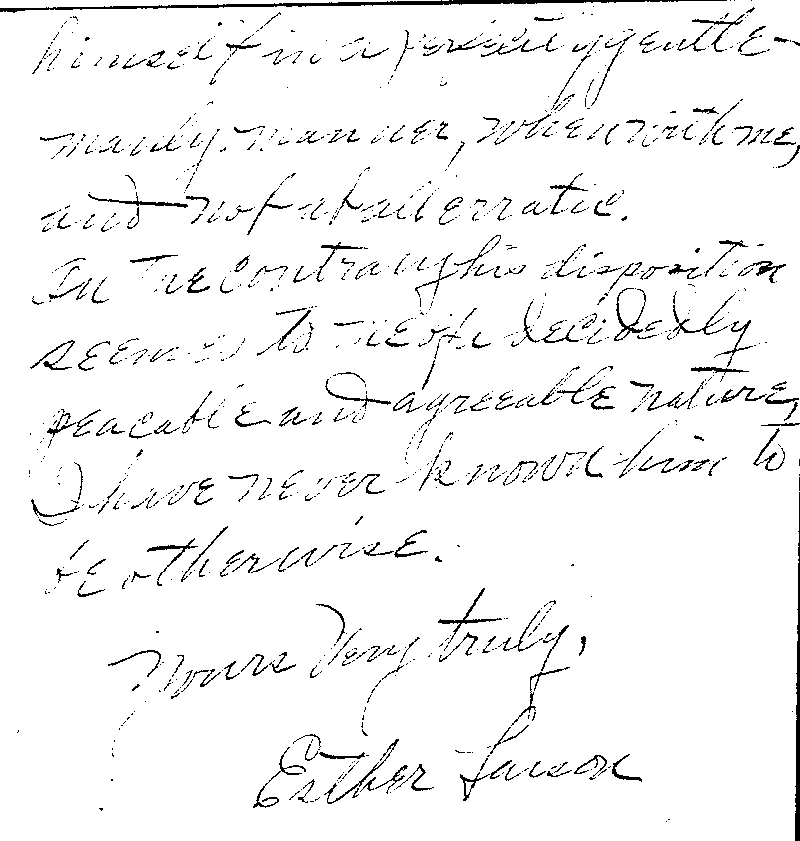 himself in a perfectly gentle-
manly manner, when with me,
and not at all erratic.
On the contrary his disposition
seemes to me of a decidedly
peacable and agreeable nature,
I have never known him to
be otherwise.
Yours Very truly,
Esther Larson